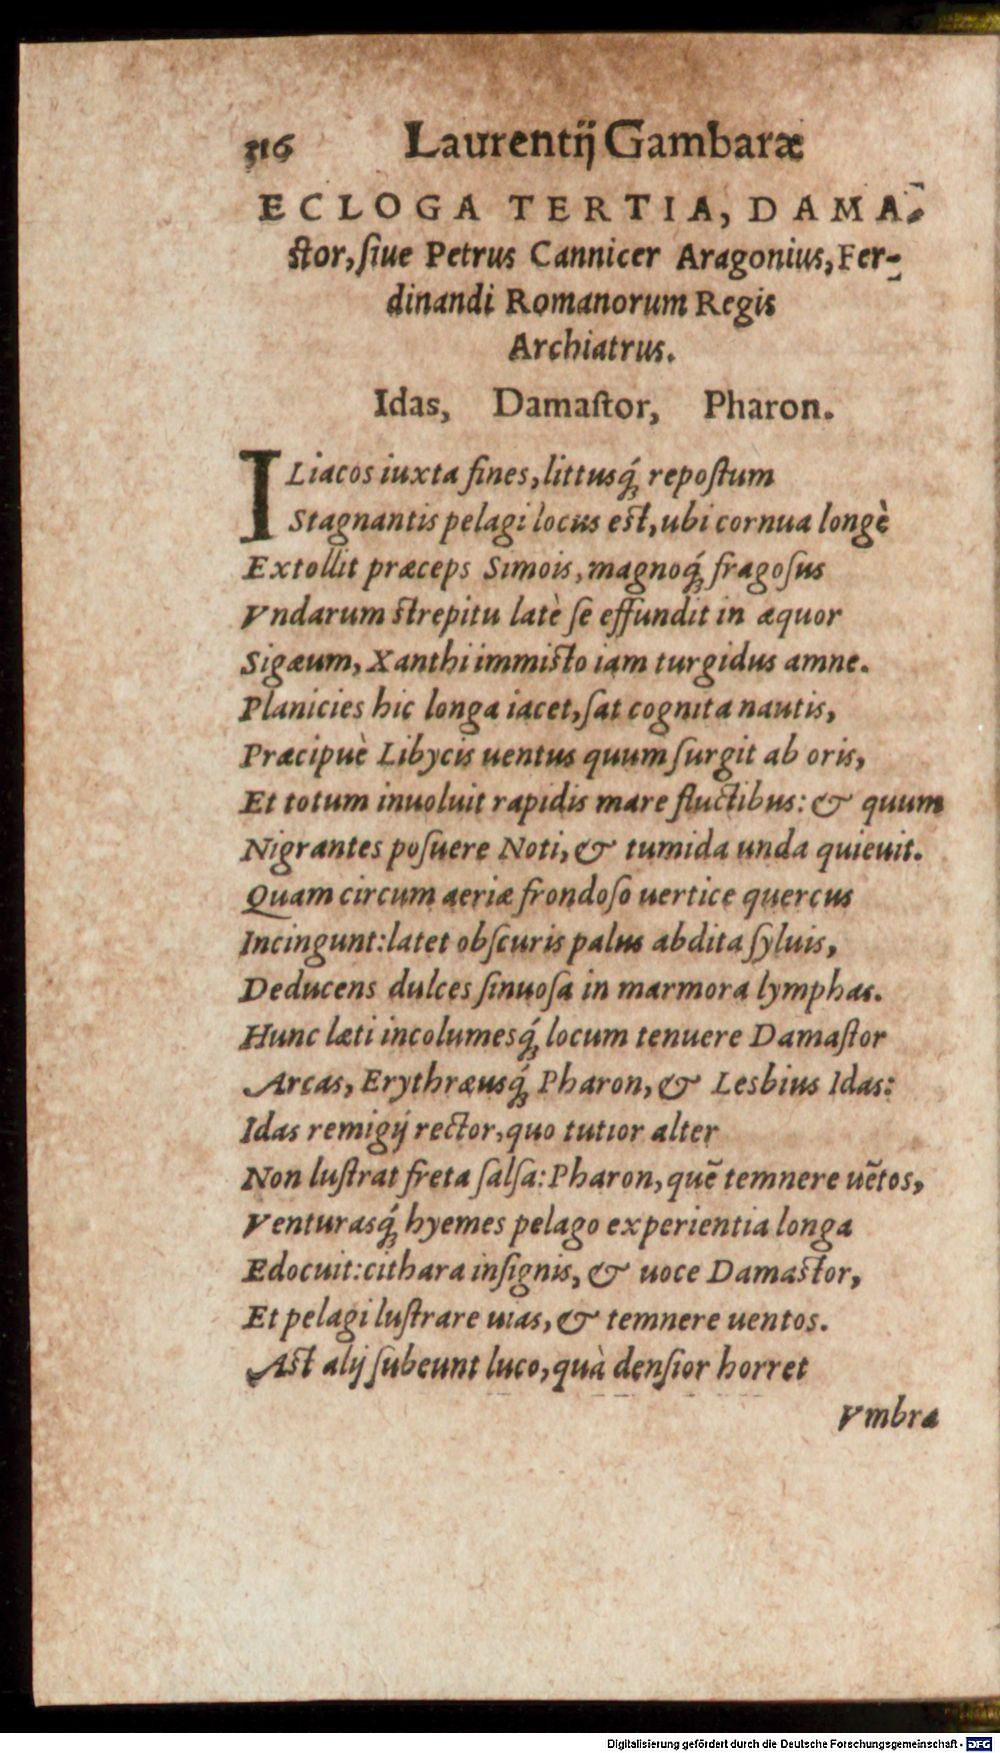 316 Laurentij Gambaræ
ECLOGA TERTIA, DAMA-
ſtor, ſiue Petrus Cannicer Aragonius, Fer-
dinandi Romanorum Regis
Archiatrus.
Idas, Damaſtor, Pharon.
ILiacos iuxta fines, littusq́; repoſtum
Stagnantis pelagi locus eſt, ubi cornua longè
Extollit præceps Simois, magnoq́; fragoſus
Vndarum ſtrepitu latè ſe effundit in æquor
Sigæum, Xanthi immiſto iam turgidus amne.
Planicies hic longa iacet, ſat cognita nautis,
Præcipuè Libycis uentus quum ſurgit ab oris,
Et totum inuoluit rapidis mare fluctibus: & quum
Nigrantes poſuere Noti, & tumida unda quieuit.
Quam circum aeriæ frondoſo uertice quercus
Incingunt: latet obſcuris palus abdita ſyluis,
Deducens dulces ſinuoſa in marmora lymphas.
Hunc læti incolumesq́; locum tenuere Damaſtor
Arcas, Erythræusq́; Pharon, & Lesbius Idas:
Idas remigij rector, quo tutior alter
Non luſtrat freta ſalſa: Pharon, quẽ temnere uẽtos,
Venturasq́; hyemes pelago experientia longa
Edocuit: cithara inſignis, & uoce Damaſtor,
Et pelagi luſtrare uias, & temnere uentos.
Aſt alij ſubeunt luco, quà denſior horret
Vmbra
Digitalisierung gefördert durch die Deutsche Forschungsgemeinschaft - DFG